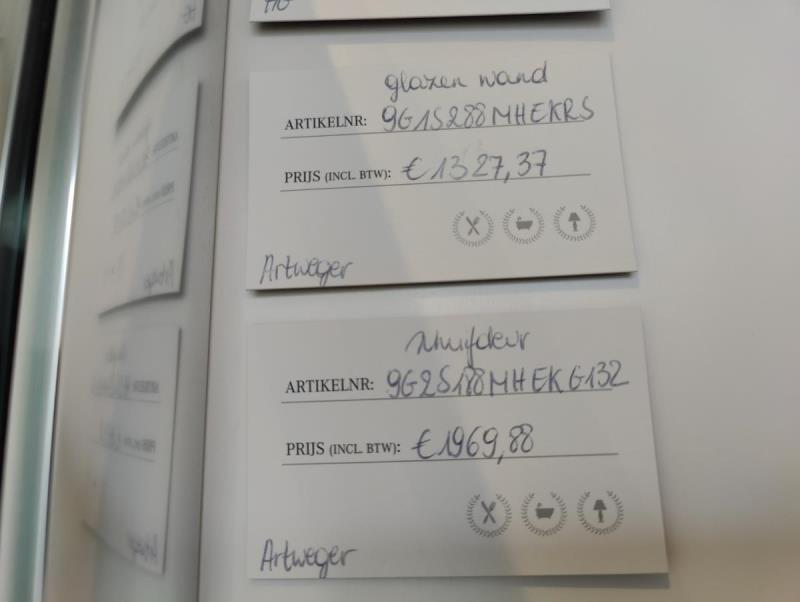 glazen wand
ARTIKELNR: 9G1S288MHEKRS
PRIJS (INCL. BTW): € 1327,37
Artweger
schuifdeur
ARTIKELNR: 9G2S188MHEKG132
PRIJS (INCL. BTW): € 1969,88
Artweger